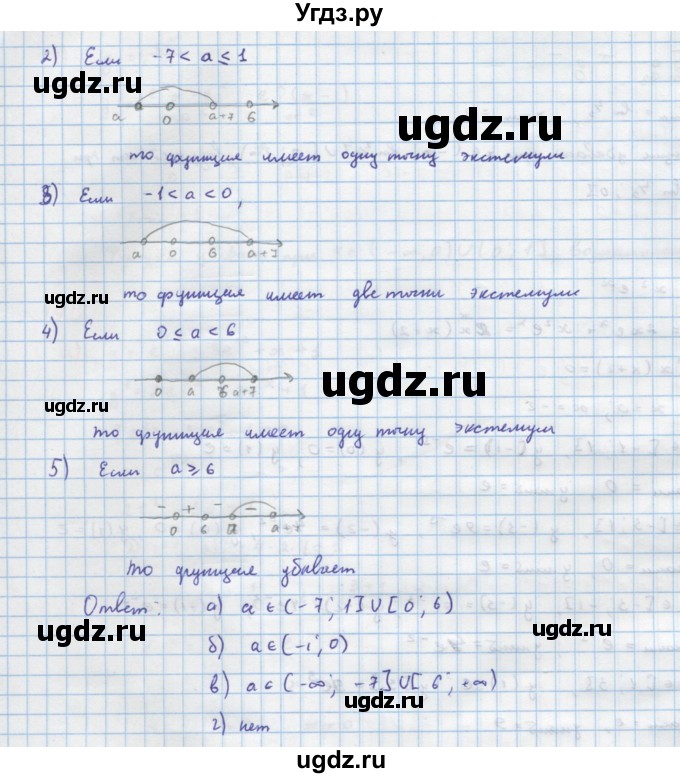 Угдз.ру
2) Если -7 < a ≤ 1
ugdz.ru
a 0 a+7 6
ugdz.ru
то функция имеет одну точку экстемули
3) Если -1 < a < 0,
a 0 6 a+7
ugdz.ru
то функция имеет две точки экстемули
4) Если 0 ≤ a < 6
ugdz.ru
0 a 6 a+7
ugdz.ru
то функция имеет одну точку экстемум
5) Если a ≥ 6
ugdz.ru
- + - -
0 6 a a+7
то функция убывает
Ответ: а) a ∈ (-7; 1] ∪ [0; 6)
ugdz.ru
ugdz.ru
б) a ∈ (-1; 0)
в) a ∈ (-∞; -7] ∪ [6; +∞)
ugdz.ru
г) нет
ugdz.ru